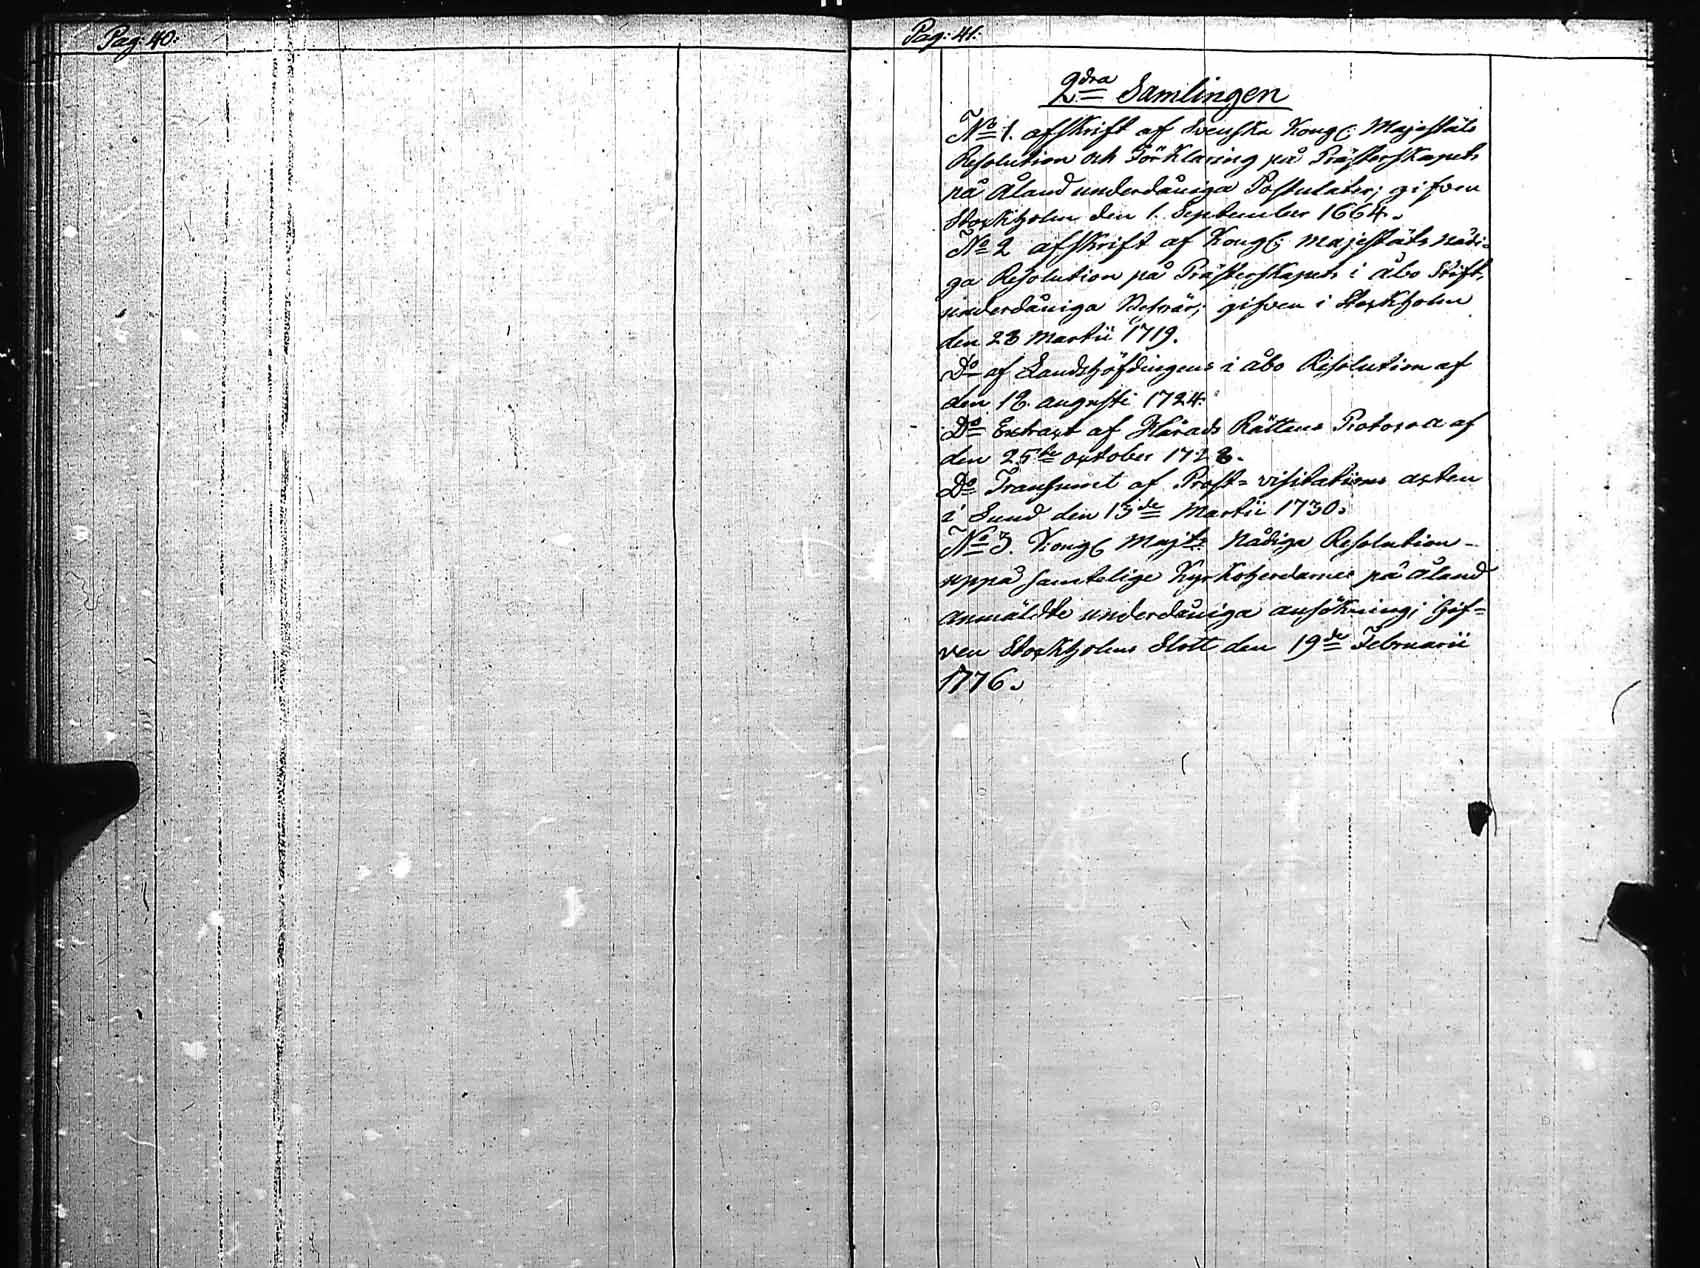 Pag: 40:
Pag: 41:
2dra Samlingen
No 1. afskrift af Svenska Kongl: Majestäts
Resolution och Förklaring på Prästerskapets
på Åland underdåniga Postulater; gifven
Stockholm den 1. September 1664.
No 2 afskrift af Kongl: Majestäts nådi=
ga Resolution på Prästerskapets i Åbo Stift,
underdåniga Besvär; gifven i Stockholm
den 23 Martii 1719.
Do af Landshöfdingens i åbo Resolution af
den 18 augusti 1724:
Do Extract af Härads Rättens Protocoll af
den 25te october 1728.
Do Transumt af Prost= visitations acten
i Sund den 13de Martii 1730.
No 3. Kongl Majts Nådiga Resolution -
uppå samtelige Kyrkoherdarnes på Åland
anmäldte underdåniga ansökning; Gif=
ven Stockholms Slott den 19de Februarii
1776.